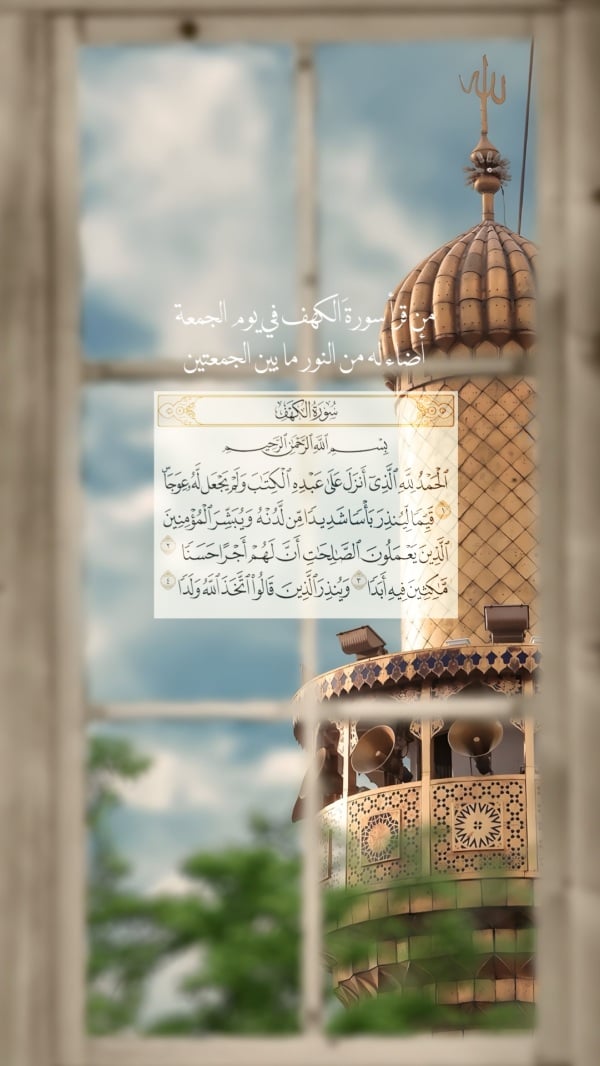 الله
من قرأ سورة الكهف في يوم الجمعة
أضاء له من النور ما بين الجمعتين
سُورَةُ الكَهۡفِ
بِسۡمِ ٱللَّهِ ٱلرَّحۡمَٰنِ ٱلرَّحِيمِ
ٱلۡحَمۡدُ لِلَّهِ ٱلَّذِيٓ أَنزَلَ عَلَىٰ عَبۡدِهِ ٱلۡكِتَٰبَ وَلَمۡ يَجۡعَل لَّهُۥ عِوَجَاۜ
١ قَيِّمٗا لِّيُنذِرَ بَأۡسٗا شَدِيدٗا مِّن لَّدُنۡهُ وَيُبَشِّرَ ٱلۡمُؤۡمِنِينَ
ٱلَّذِينَ يَعۡمَلُونَ ٱلصَّٰلِحَٰتِ أَنَّ لَهُمۡ أَجۡرًا حَسَنٗا ٢
مَّٰكِثِينَ فِيهِ أَبَدٗا ٣ وَيُنذِرَ ٱلَّذِينَ قَالُواْ ٱتَّخَذَ ٱللَّهُ وَلَدٗا ٤